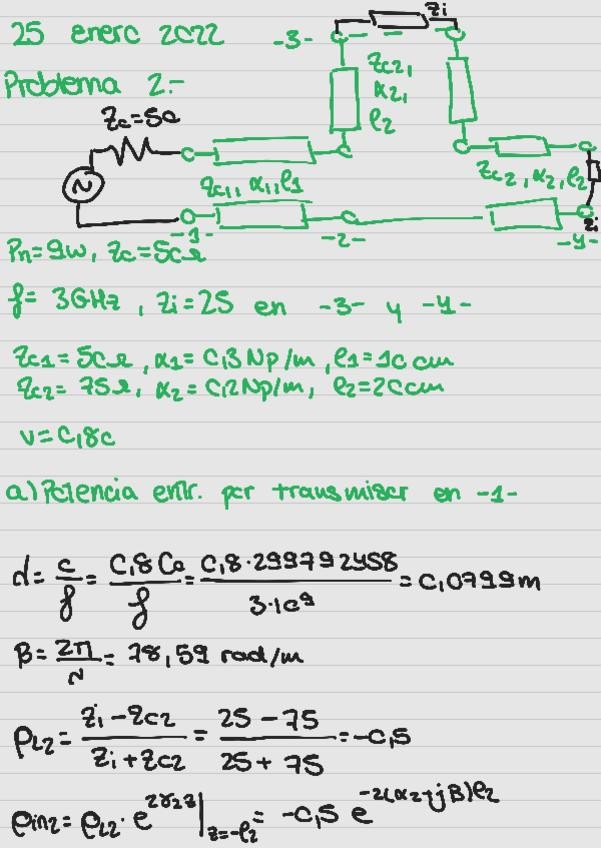 25 enero 2022
-3-
Zi
Problema 2.-
Zc2,
α2,
l2
Zc=50
Zc1, α1, l1
Zc2, α2, l2
Zi
-1-
-2-
-4-
Pn=9W, Zc=50Ω
f= 3GHz, Zi=25 en -3- y -4-
Zc1= 50Ω, α1= 0,3 Np/m, l1= 10 cm
Zc2= 75Ω, α2= 0,2 Np/m, l2= 20cm
v=0,8c
a) Potencia entr. por transmisor en -1-
λ= c/f = 0,8 Co/f = 0,8·299792458/3·10⁹ = 0,0799m
β= 2π/λ = 78,59 rad/m
ρL2= Zi-Zc2/Zi+Zc2 = 25-75/25+75 = -0,5
ρin2= ρL2· e^2γ2z|z=-l2 = -0,5 e^-2(α2+jβ)l2